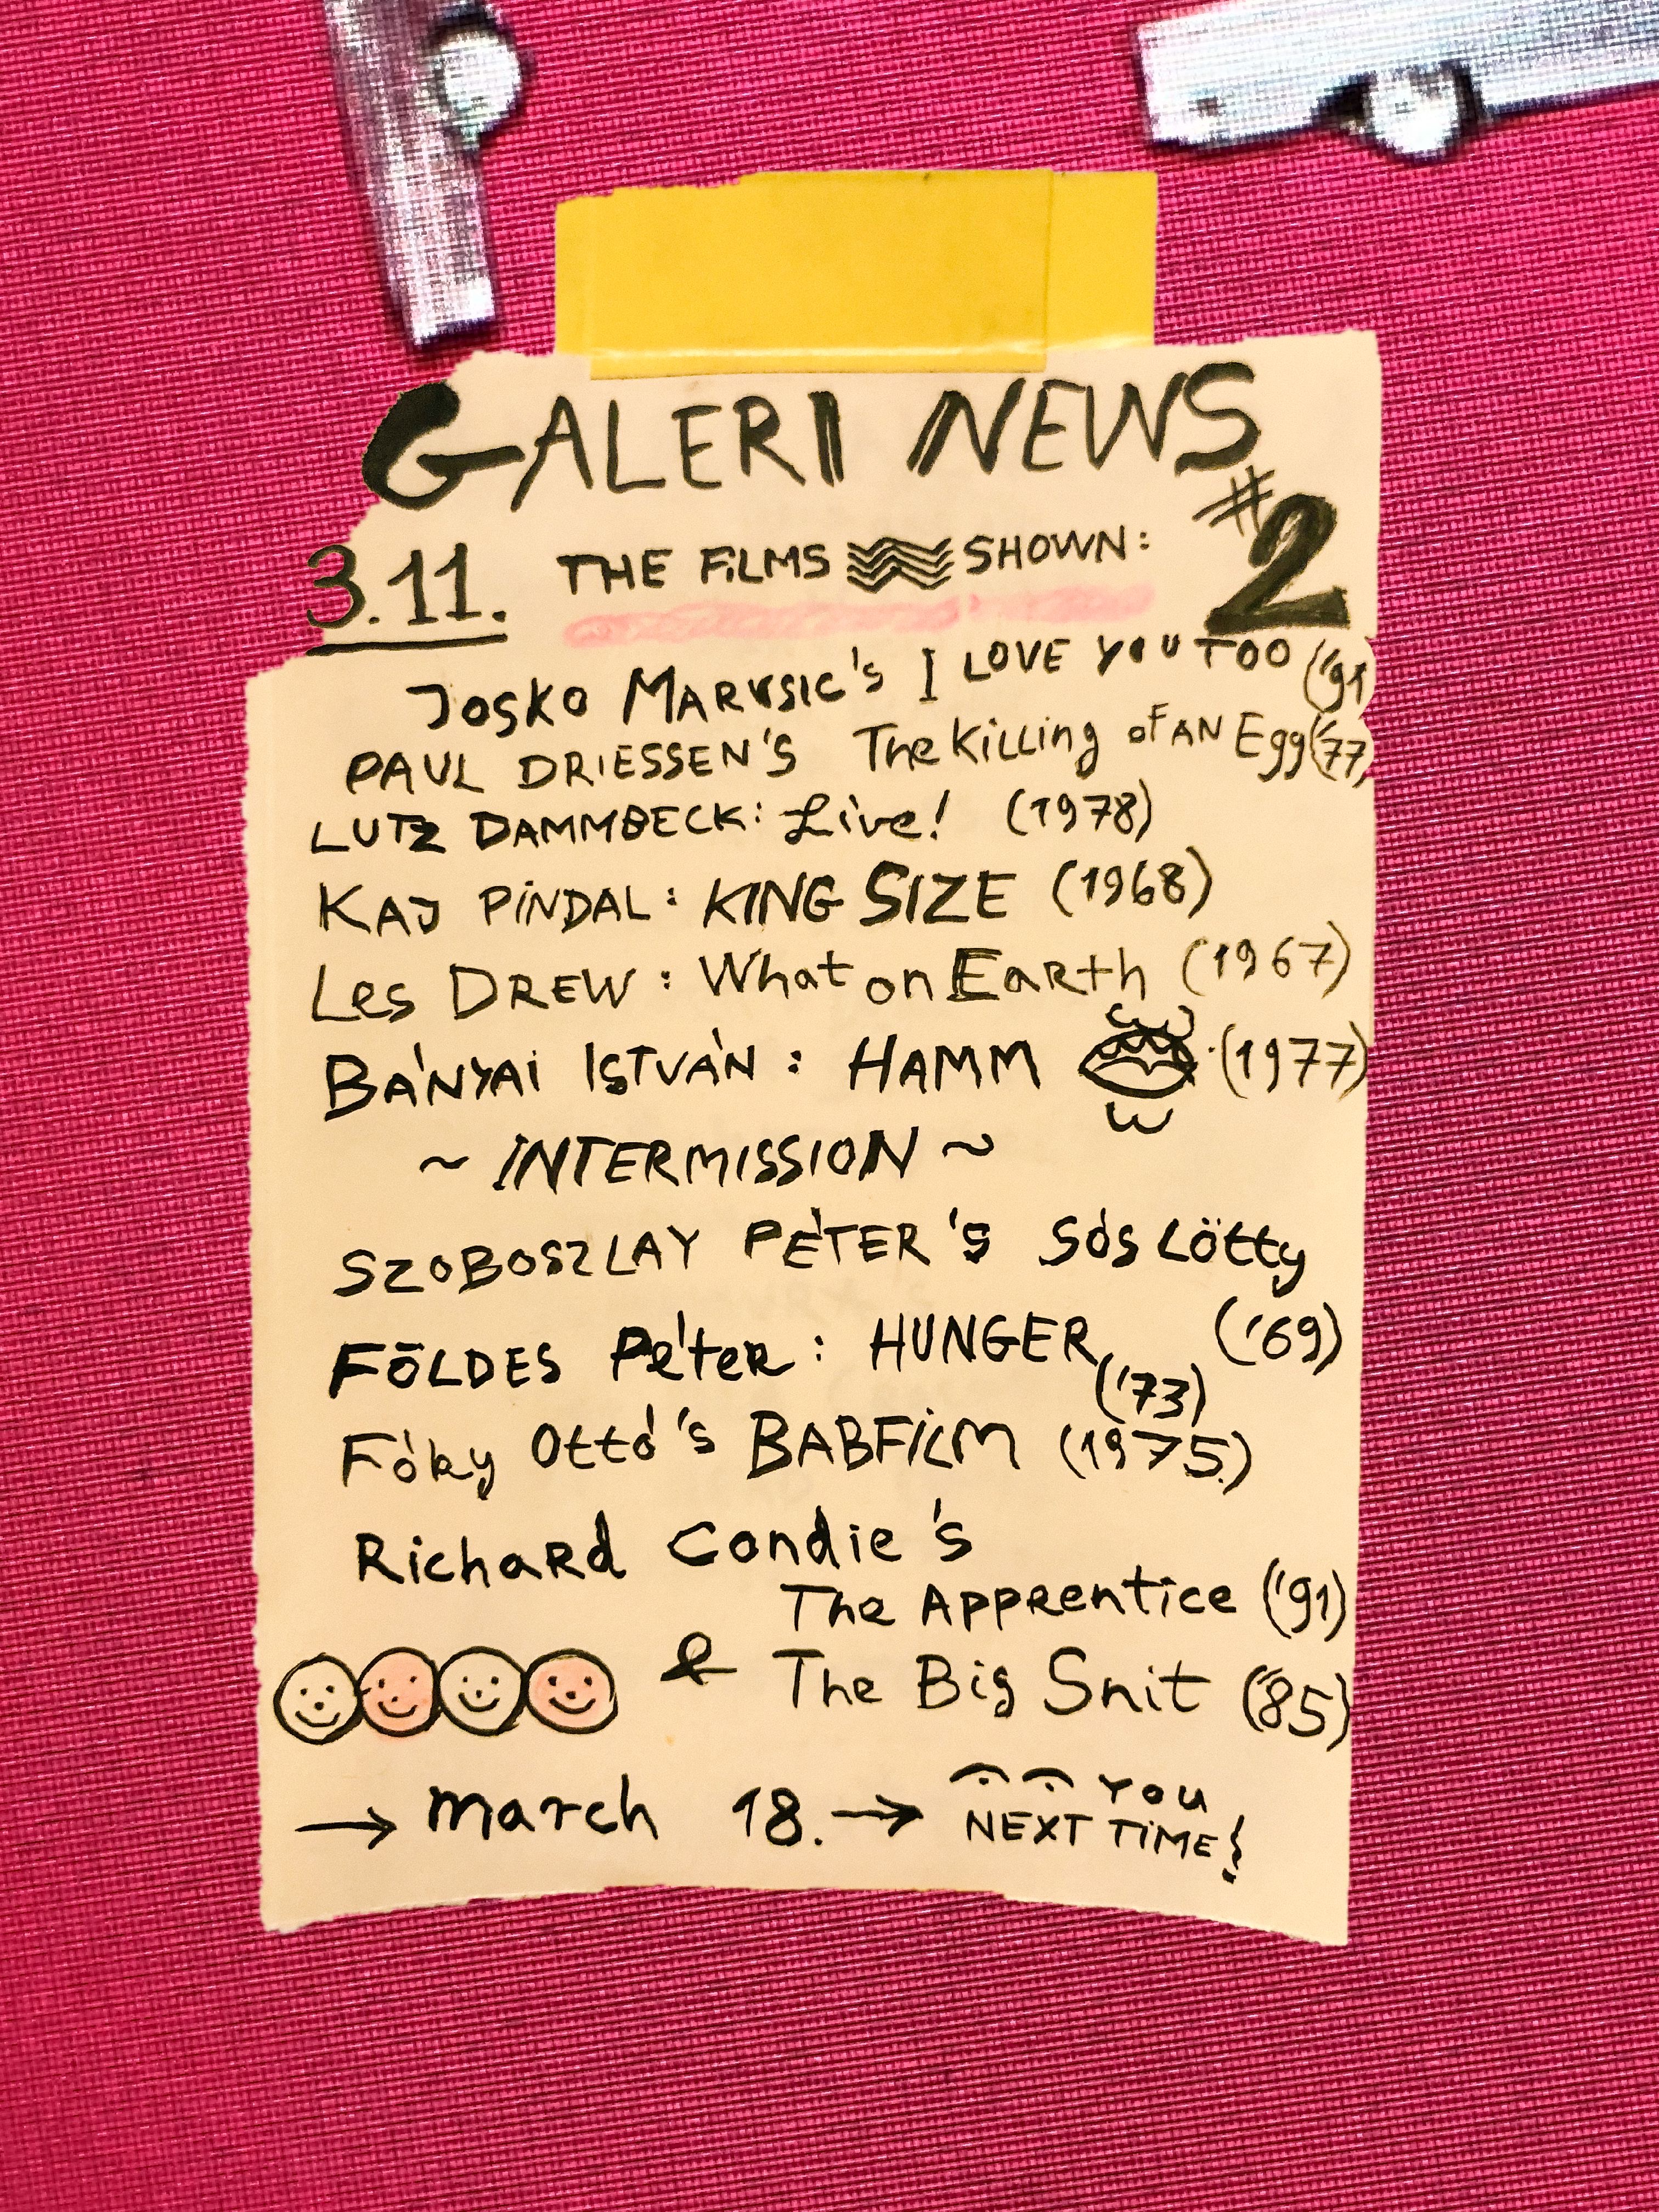 GALERI NEWS
#2
3.11. THE FiLMS SHOWN:
JOSKO MARUSIC's I LOVE YOU TOO ('91)
PAUL DRIESSEN'S The Killing of AN Egg ('77)
LUTZ DAMMBECK: Live! (1978)
KAJ PiNDAL: KING SIZE (1968)
Les DREW: What on Earth (1967)
BÁNYAi ISTVÁN: HAMM (1977)
~ INTERMISSION ~
SZOBOSZLAY PÉTER's Sós Lötty
('69)
FÖLDES Péter: HUNGER ('73)
Fóky Ottó's BABFiLM (1975.)
Richard Condie's
The Apprentice ('91)
& The Big Snit ('85)
→ march 18. → YOU
NEXT TiME!